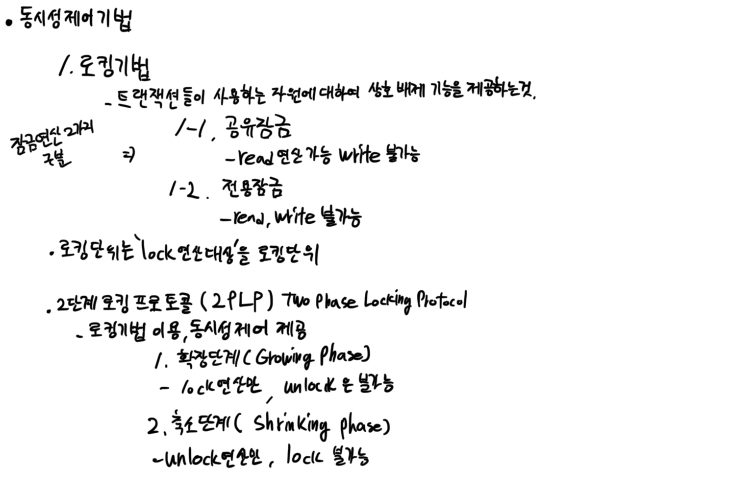 • 동시성제어기법
1. 로킹기법
- 트랜잭션들이 사용하는 자원에 대하여 상호 배제 기능을 제공하는것.
잠금연산 2가지
구분 =>
1-1. 공유잠금
- read 연산 가능 write 불가능
1-2. 전용잠금
- read, write 불가능
• 로킹단위는 'lock 연산대상'을 로킹단위
• 2단계 로킹 프로토콜 (2PLP) Two Phase Locking Protocol
- 로킹기법 이용, 동시성제어 제공
1. 확장단계 (Growing Phase)
- lock 연산만, unlock은 불가능
2. 축소단계 (Shrinking phase)
- unlock연산만, lock 불가능